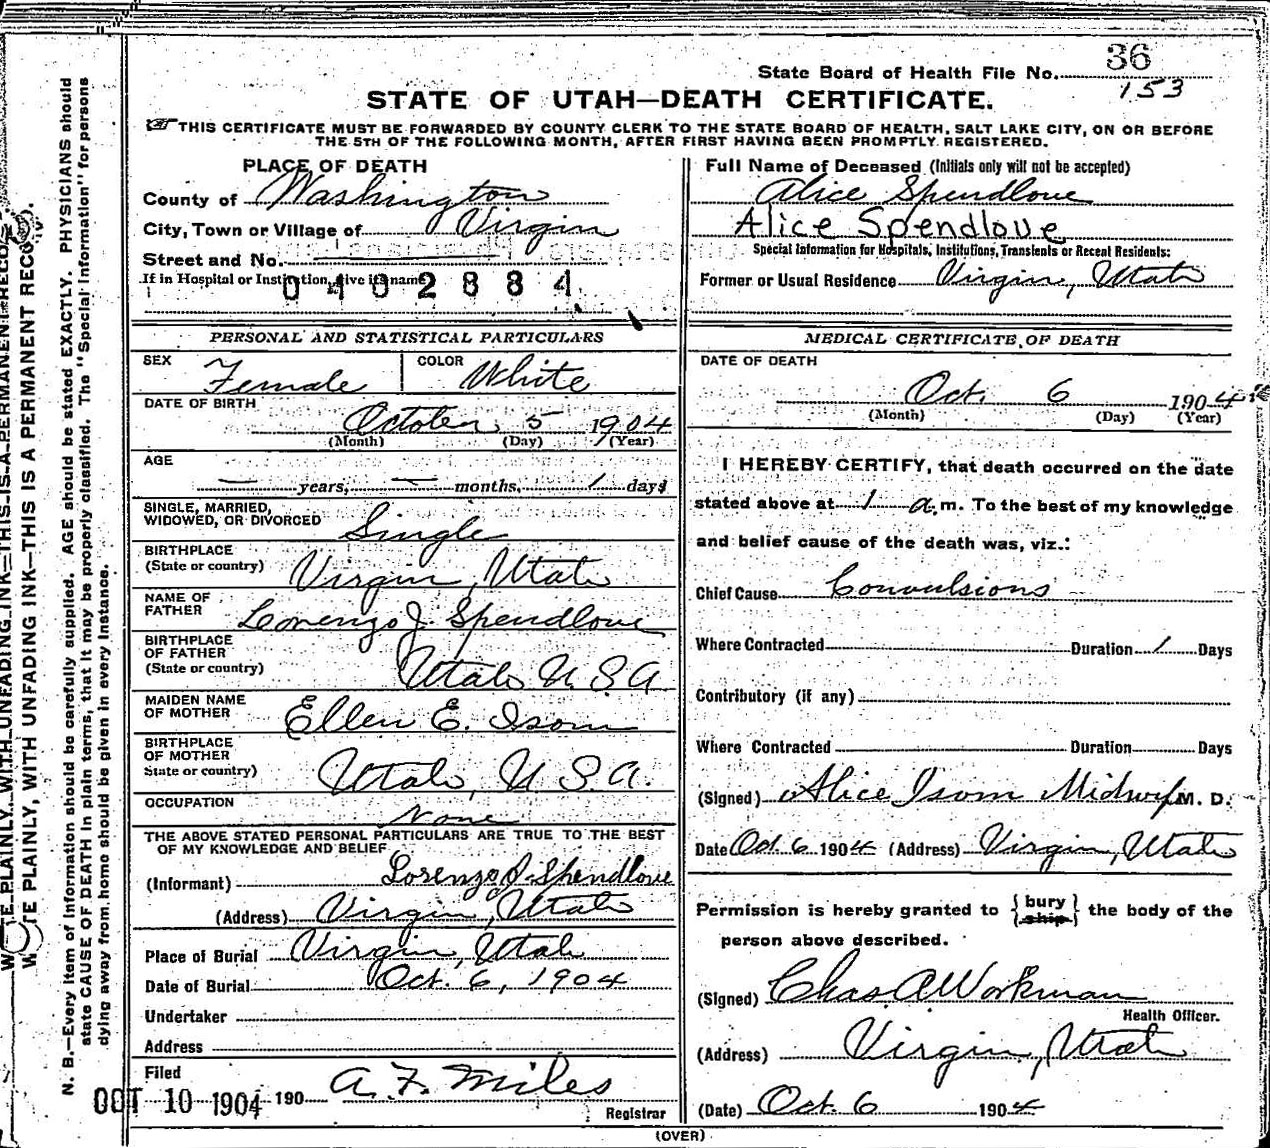 State Board of Health File No. 36
153
STATE OF UTAH—DEATH CERTIFICATE.
THIS CERTIFICATE MUST BE FORWARDED BY COUNTY CLERK TO THE STATE BOARD OF HEALTH, SALT LAKE CITY, ON OR BEFORE
THE 5TH OF THE FOLLOWING MONTH, AFTER FIRST HAVING BEEN PROMPTLY REGISTERED.
PLACE OF DEATH
County of Washington
City, Town or Village of Virgin
Street and No.
If in Hospital or Institution, give its name
0402884
Full Name of Deceased (Initials only will not be accepted)
Alice Spendlove
Alice Spendlove
Special Information for Hospitals, Institutions, Transients or Recent Residents:
Former or Usual Residence Virgin, Utah
PERSONAL AND STATISTICAL PARTICULARS
SEX Female COLOR White
DATE OF BIRTH
October 5 1904
(Month) (Day) (Year)
AGE
— years, — months, 1 days
SINGLE, MARRIED,
WIDOWED, OR DIVORCED Single
BIRTHPLACE
(State or country) Virgin, Utah
NAME OF
FATHER Lorenzo J. Spendlove
BIRTHPLACE
OF FATHER
(State or country) Utah U.S.A
MAIDEN NAME
OF MOTHER Ellen E. Isom
BIRTHPLACE
OF MOTHER
State or country) Utah, U.S.A.
OCCUPATION
None
THE ABOVE STATED PERSONAL PARTICULARS ARE TRUE TO THE BEST
OF MY KNOWLEDGE AND BELIEF
(Informant) Lorenzo J. Spendlove
(Address) Virgin, Utah
Place of Burial Virgin, Utah
Date of Burial Oct. 6, 1904
Undertaker
Address
Filed
OCT 10 1904 190 A. F. Miles
Registrar
MEDICAL CERTIFICATE OF DEATH
DATE OF DEATH
Oct. 6 1904
(Month) (Day) (Year)
I HEREBY CERTIFY, that death occurred on the date
stated above at 1 a.m. To the best of my knowledge
and belief cause of the death was, viz.:
Chief Cause Convulsions
Where Contracted Duration 1 Days
Contributory (if any)
Where Contracted Duration Days
(Signed) Alice Isom Midwife M. D.
Date Oct. 6 1904 (Address) Virgin, Utah
Permission is hereby granted to {bury ship} the body of the
person above described.
(Signed) Chas. A Workman
Health Officer.
(Address) Virgin, Utah
(Date) Oct. 6 1904
(OVER)
N. B.—Every item of information should be carefully supplied. AGE should be stated EXACTLY. PHYSICIANS should
state CAUSE OF DEATH in plain terms, that it may be properly classified. The "Special Information" for persons
dying away from home should be given in every instance.
WRITE PLAINLY, WITH UNFADING INK—THIS IS A PERMANENT RECORD.